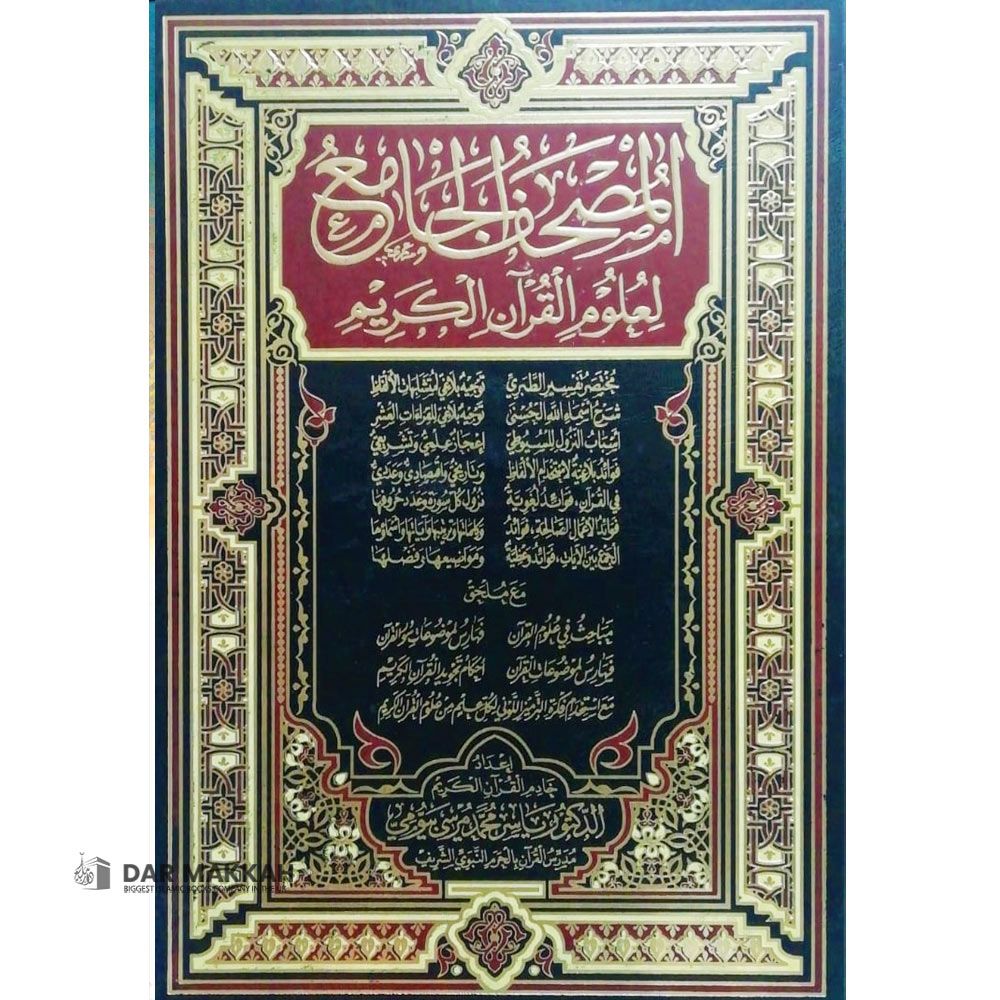 المُصْحَفُ الجَامِعُ
لِعُلُوْمِ القُرْآنِ الكَرِيْمِ
مُخْتَصَر تَفْسِيْر الطَّبَرِيّ
شَرْحُ أَسْمَاءِ اللهِ الحُسْنَى
أَسْبَابُ النُّزُولِ لِلسُّيُوطِيّ
فَوَائِدُ بَلَاغِيَّةٌ لِاسْتِخْدَامِ الأَلْفَاظِ
فِي القُرْآنِ، فَوَائِدُ لُغَوِيَّة
فَوَائِدُ الأَعْمَالِ الصَّالِحَةِ، فَوَائِدُ
الجَمْعِ بَيْنَ الآيَاتِ، فَوَائِدُ وَعْظِيَّة
تَوْجِيْهٌ بَلَاغِيّ لِمُتَشَابِهَاتِ الأَلْفَاظِ
تَوْجِيْهٌ بَلَاغِيّ لِلْقِرَاءَاتِ العَشْرِ
إِعْجَازٌ عِلْمِيٌّ وَتَشْرِيعِيٌّ
وَتَارِيْخِيٌّ وَاقْتِصَادِيٌّ وَعَدَدِيٌّ
نُزُولُ كُلِّ سُورَة وَعَدَدُ حُرُوفِهَا
وَكَلِمَاتِهَا وَتَرْتِيْبِهَا وَآيَاتِهَا وَأَسْمَاؤُهَا
وَمَوَاضِيعهَا وَفَضْلهَا
مَعَ مُلْحَق
مَبَاحِثُ فِي عُلُومِ القُرْآنِ
فَهَارِسُ لِمَوْضُوعَاتِ سُوَرِ القُرْآنِ
فَهَارِسُ لِمَوْضُوعَاتِ القُرْآنِ
أَحْكَامُ تَجْوِيْدِ القُرْآنِ الكَرِيْمِ
مَعَ اسْتِخْدَامِ فِكْرَةِ التَّرْمِيزِ اللَّوْنِي لِكُلِّ عِلْمٍ مِنْ عُلُومِ القُرْآنِ الكَرِيْمِ
إِعْدَادُ
خَادِمِ القُرْآنِ الكَرِيْمِ
الدُّكْتُور يَاسِر مُحَمَّد مُرْسِي بَيُّومِي
مُدَرِّسُ القُرْآنِ بِالحَرَمِ النَّبَوِيِّ الشَّرِيْفِ
DAR MAKKAH
BIGGEST ISLAMIC BOOKS COMPANY IN THE UK